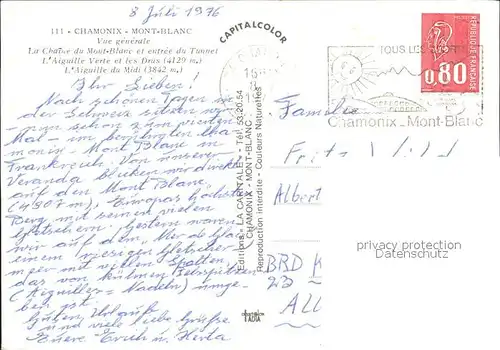 8 Juli 1976
111 - CHAMONIX - MONT-BLANC
Vue générale
La Chaîne du Mont-Blanc et entrée du Tunnel
L'Aiguille Verte et les Drus (4129 m.)
L'Aiguille du Midi (3842 m.)
Ihr Lieben!
Nach schönen Tagen in
der Schweiz sitzen wir
nun schon zum zweiten
Mal - im Cha-
monix - Mont Blanc in
Frankreich. Von unserer
Veranda blicken wir direkt
auf den Mont Blanc
(4807 m), Europas höchster
Berg mit seinen vielen
Gletschern. Gestern waren
wir auf dem „Mer de Glace"
einem riesigen Gletscher
meer mit vielen Spalten,
das von kühnen Felsspitzen
(Aiguilles = Nadeln) umge-
ben ist.
Guten Urlaub
und viele liebe Grüße
Euere Erich u. Herta
CAPITALCOLOR
Editions « LA CAPITALE » - Tél. 53.20.54
CHAMONIX - MONT-BLANC
Reproduction interdite - Couleurs Naturelles
TOUS LES
Chamonix-Mont-Blanc
0,80
REPUBLIQUE FRANÇAISE
Familie
Fritz
Albert
BRD
privacy protection
Datenschutz